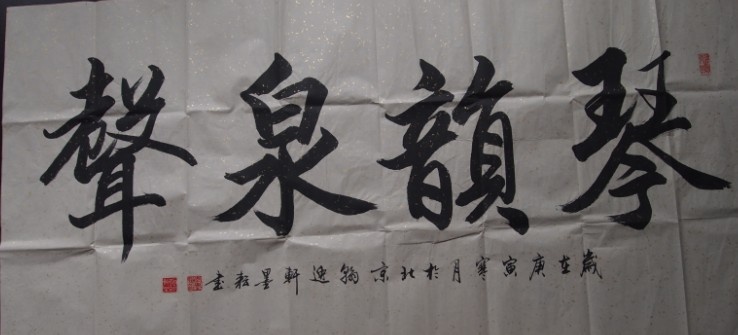 琴韻泉聲
歲在庚寅寒月於北京翰逸軒墨耘書